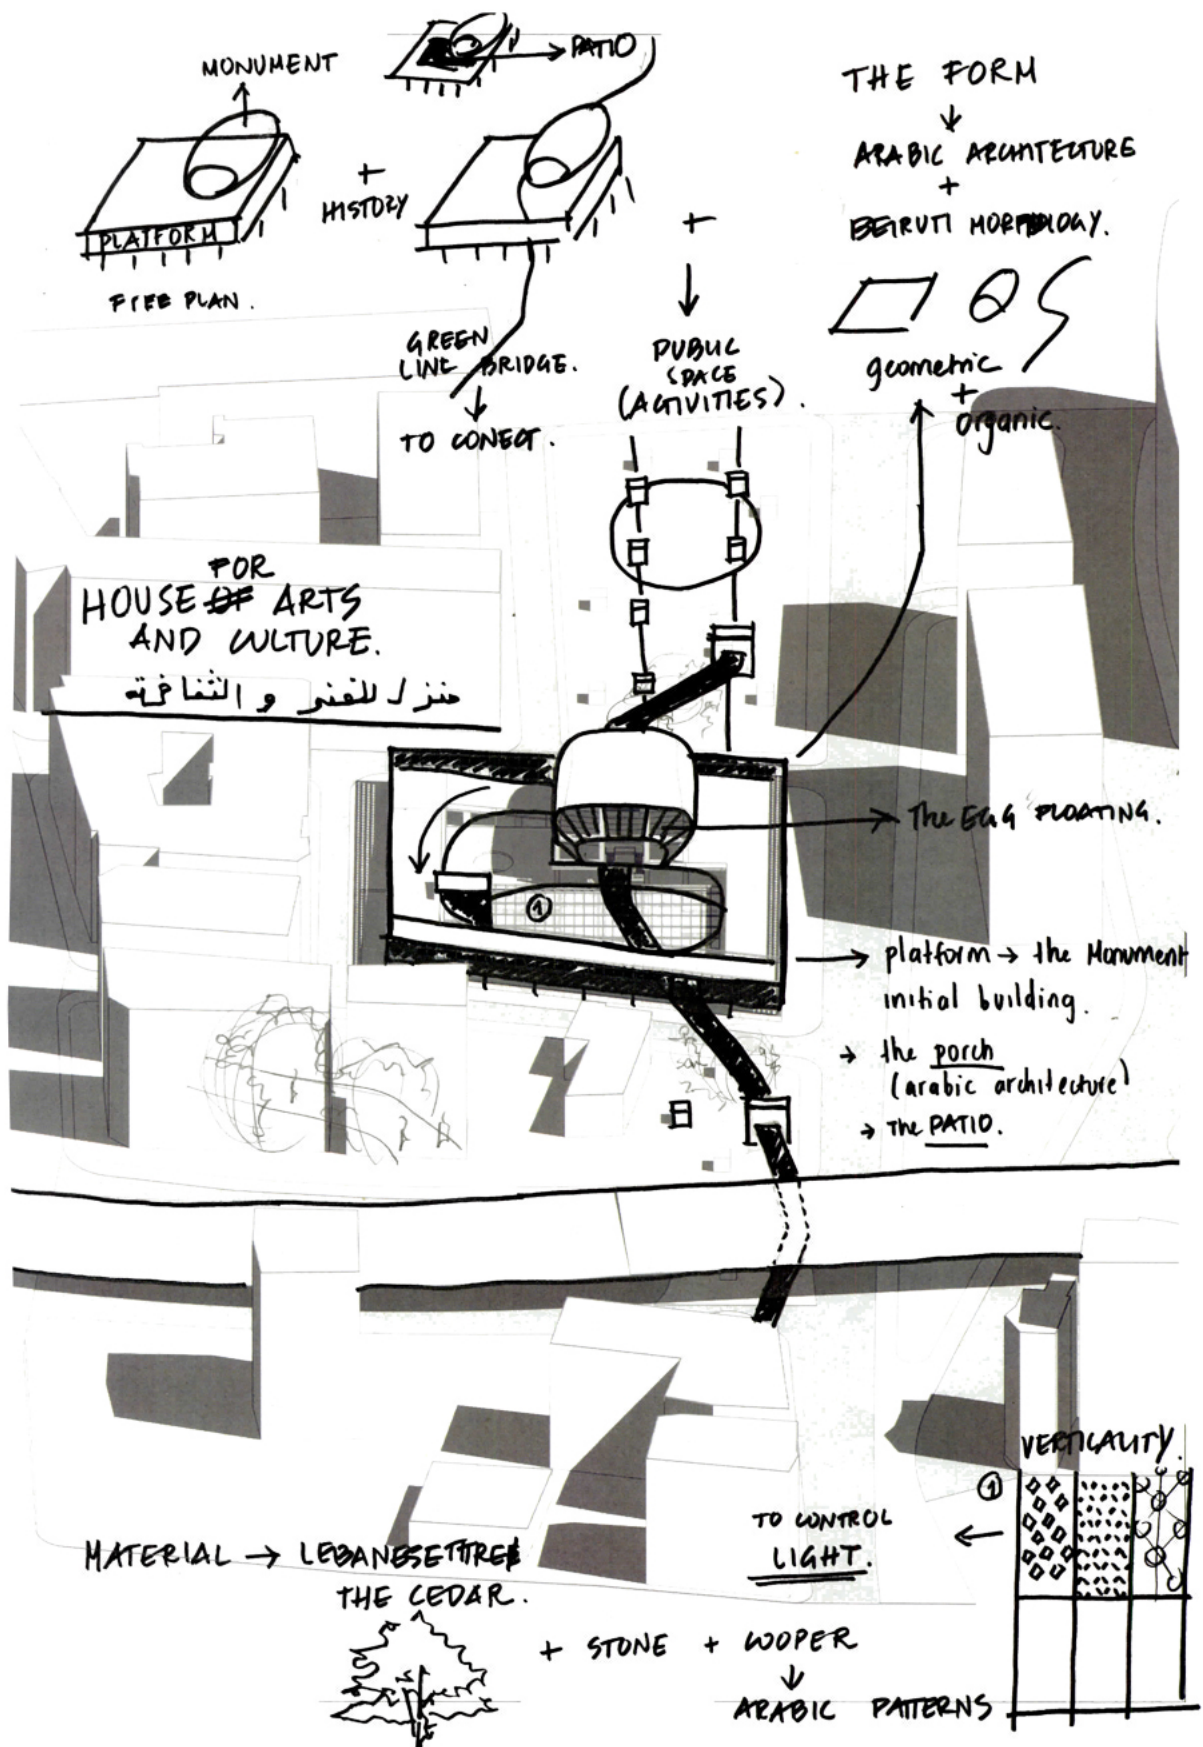 MONUMENT
PATIO
PLATFORM
FREE PLAN.
+
HISTORY
+
GREEN
LINE BRIDGE.
TO CONECT.
PUBLIC
SPACE
(ACTIVITIES).
THE FORM
ARABIC ARCHITECTURE
+
BEIRUTI MORPHOLOGY.
geometric
+
organic.
FOR
HOUSE OF ARTS
AND CULTURE.
منزل للفنر و الثقافة
The EGG FLOATING.
1
platform → the Monument
initial building.
→ the porch
(arabic architecture)
→ The PATIO.
VERTICALITY.
1
TO CONTROL
LIGHT.
MATERIAL → LEBANESE TREE
THE CEDAR.
+ STONE + COOPER
ARABIC PATTERNS